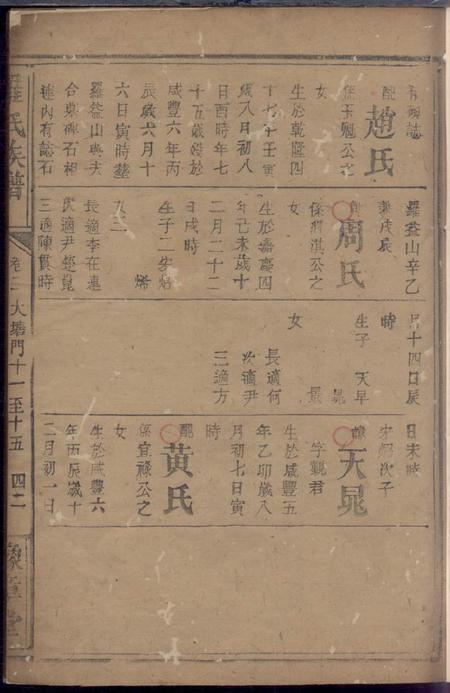 有碑誌
配趙氏
係玉魁公之
女
生於乾隆四
十七年壬寅
歲八月初八
日酉時年七
十五歲歿於
咸豐六年丙
辰歲六月十
六日寅時葬
羅盆山與夫
合塟碑石相
連內有誌石
羅盆山辛乙
兼戌辰
周氏
係
淇公之
女
生於嘉慶四
年己未歲十
二月二十二
日戌時
生子二安焰
烯
女三
長適李在蕙
次適尹楚崑
三適陳貫時
月十四日辰
時
生子 天早
晁
晟
女
長適何
次適尹
三適方
日未時
安焰次子
天晁
字觀君
生於咸豐五
年乙卯歲八
月初七日寅
時
配黃氏
係宜祿公之
女
生於咸豐六
年丙辰歲十
二月初一日
羅氏族譜
卷二
大塘門十一至十五
四二
豫章堂